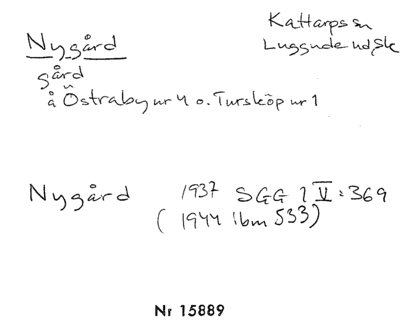 Nygård
Kattarps sn
Luggude hd, Sk
gård
å Östraby nr 4 o. Tursköp nr 1
Nygård 1937 SGG 1 V: 369
(1944 ibm 533)
Nr 15889